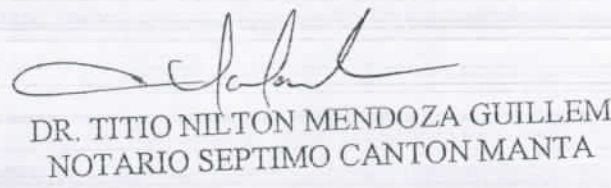 DR. TITIO NILTON MENDOZA GUILLEM
NOTARIO SEPTIMO CANTON MANTA